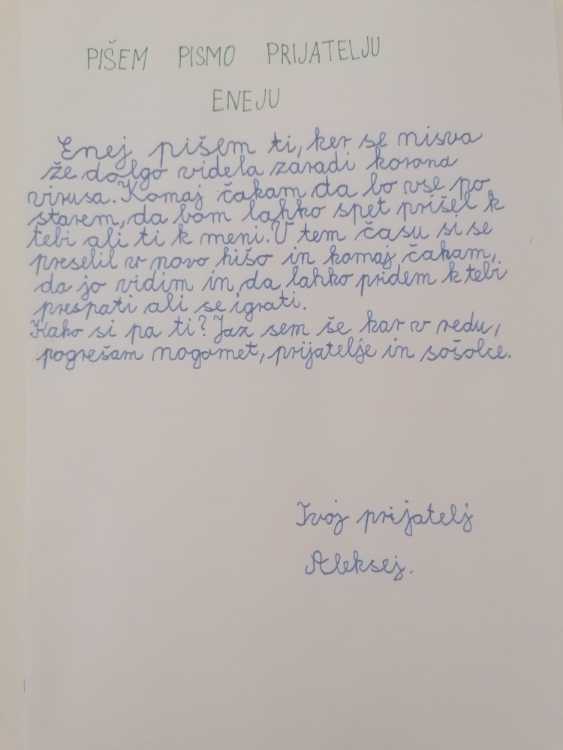 PIŠEM PISMO PRIJATELJU
ENEJU
Enej pišem ti, ker se nisva
že dolgo videla zaradi korona
virusa. Komaj čakam da bo vse po
starem, da bom lahko spet prišel k
tebi ali ti k meni. V tem času si se
preselil v novo hišo in komaj čakam,
da jo vidim in, da lahko pridem k tebi
prespati ali se igrati.
Kako si pa ti? Jaz sem še kar v redu,
pogrešam nogomet, prijatelje in sošolce.
Tvoj prijatelj
Aleksej.